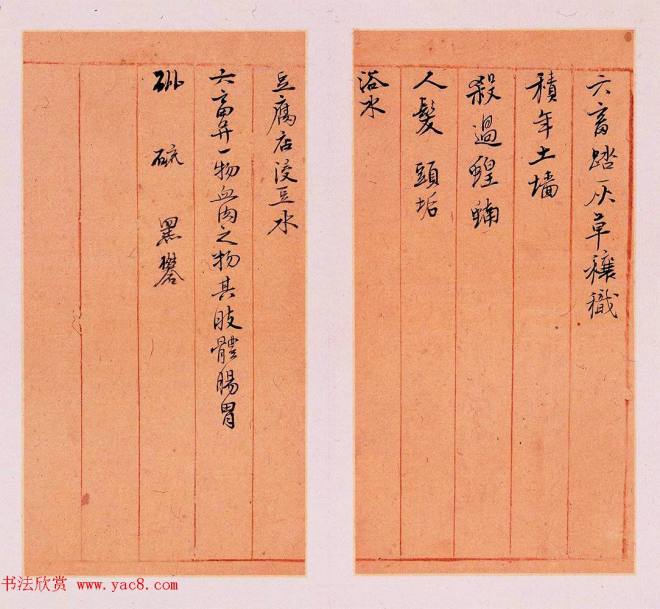 六畜踏灰草穰
積年土墻
殺過蝗蝻
人髮頭垢
浴水
豆腐店浸豆水
六畜并一物血肉之物其肢體腸胃
硫 黑礬
书法欣赏 www.yac8.com